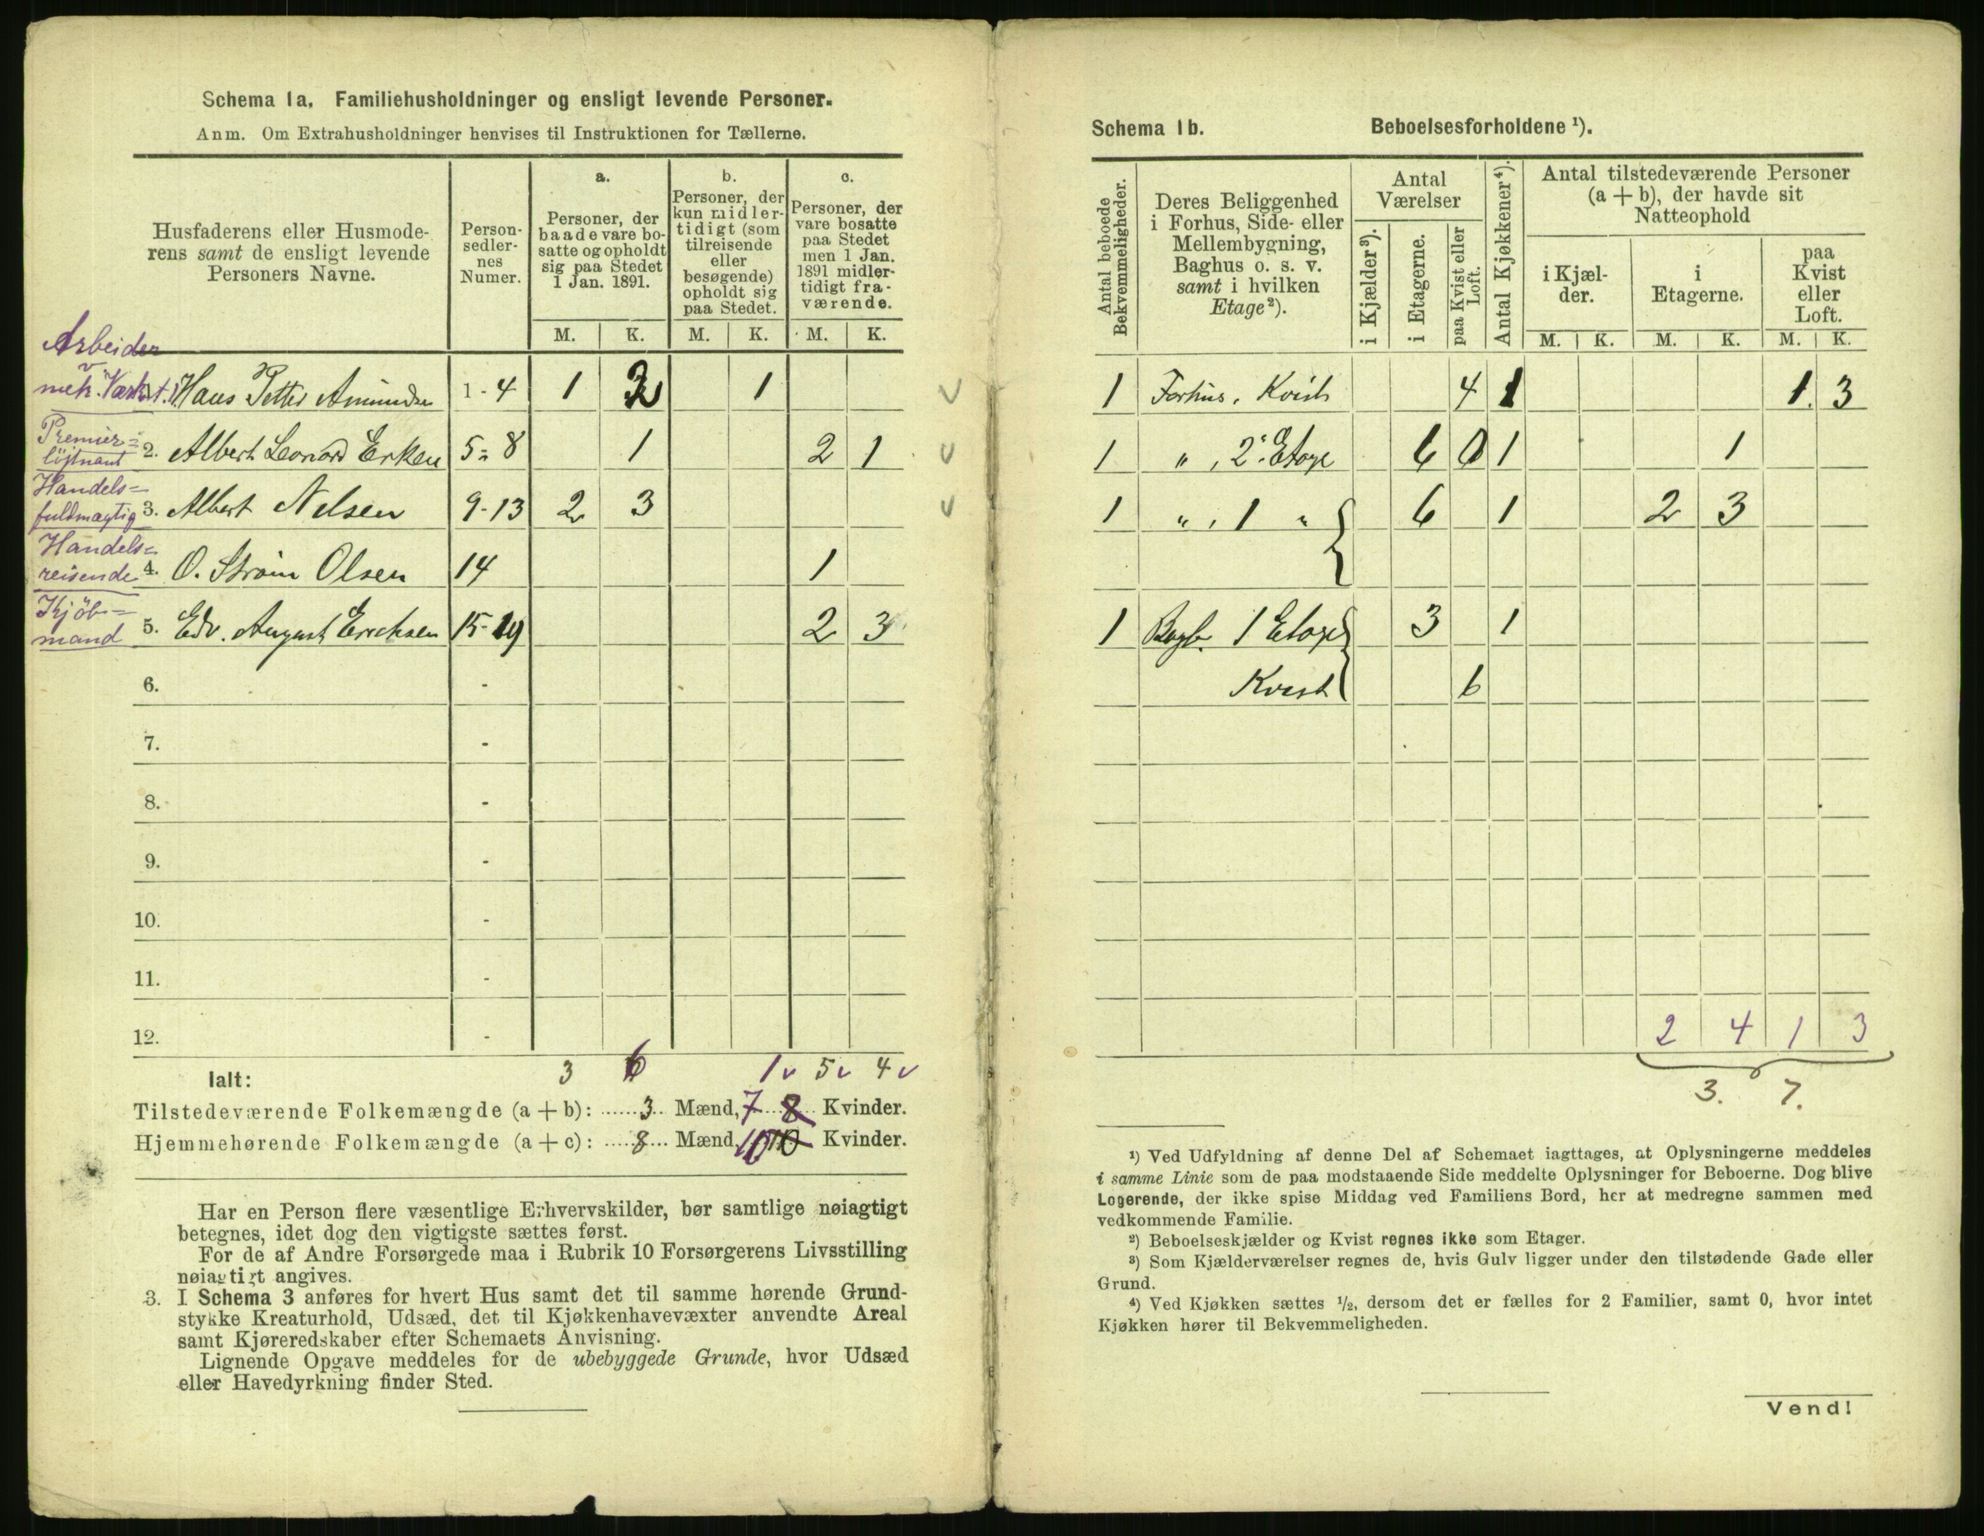 Schema 1a. Familiehusholdninger og ensligt levende Personer.
Anm. Om Extrahusholdninger henvises til Instruktionen for Tællerne.
Husfaderens eller Husmode-
rens samt de ensligt levende
Personers Navne.
Person-
sedler-
nes
Numer.
a.
Personer, der
baade vare bo-
satte og opholdt
sig paa Stedet
1 Jan. 1891.
b.
Personer, der
kun midler-
tidigt (som
tilreisende
eller
besøgende)
opholdt sig
paa Stedet.
c.
Personer, der
vare bosatte
paa Stedet
men 1 Jan.
1891 midler-
tidigt fra-
værende.
M. K. M. K. M. K.
Arbeider
v
mek. Værkst. 1. Hans Petter Amundsen 1-4 1 2 1
Premier=
löjtnant 2. Albert Leonard Erken 5-8 1 2 1
Handels=
fuldmægtig 3. Albert Nelsen 9-13 2 3
Handels=
reisende 4. O. Strøm Olsen 14 1
Kjöb=
mand 5. Edv. August Erichsen 15-19 2 3
6. -
7. -
8. -
9. -
10. -
11. -
12. -
Ialt: 3 6 1 v 5 v 4 v
Tilstedeværende Folkemængde (a + b): 3 Mænd, 7 8 Kvinder.
Hjemmehørende Folkemængde (a + c): 8 Mænd, 10 10 Kvinder.
Har en Person flere væsentlige Erhvervskilder, bør samtlige nøiagtigt
betegnes, idet dog den vigtigste sættes først.
For de af Andre Forsørgede maa i Rubrik 10 Forsørgerens Livsstilling
nøiagtigt angives.
3. I Schema 3 anføres for hvert Hus samt det til samme hørende Grund-
stykke Kreaturhold, Udsæd, det til Kjøkkenhavevæxter anvendte Areal
samt Kjøreredskaber efter Schemaets Anvisning.
Lignende Opgave meddeles for de ubebyggede Grunde, hvor Udsæd
eller Havedyrkning finder Sted.
Schema 1b. Beboelsesforholdene ¹).
Antal beboede
Bekvemmeligheder.
Deres Beliggenhed
i Forhus, Side- eller
Mellembygning,
Baghus o. s. v.
samt i hvilken
Etage²).
Antal
Værelser
i Kjælder³).
i Etagerne.
paa Kvist eller
Loft.
Antal Kjøkkener⁴).
Antal tilstedeværende Personer
(a + b), der havde sit
Natteophold
i Kjæl-
der.
i
Etagerne.
paa
Kvist
eller
Loft.
M. K. M. K. M. K.
1 Forhus, Kvist 4 1 1 3
1 " , 2. Etage 6 0 1 1
1 " , 1 " 6 1 2 3
1 Bagb. 1 Etage 3 1
Kvist 6
2 4 1 3
3. 7.
¹) Ved Udfyldning af denne Del af Schemaet iagttages, at Oplysningerne meddeles
i samme Linie som de paa modstaaende Side meddelte Oplysninger for Beboerne. Dog blive
Logerende, der ikke spise Middag ved Familiens Bord, her at medregne sammen med
vedkommende Familie.
²) Beboelseskjælder og Kvist regnes ikke som Etager.
³) Som Kjælderværelser regnes de, hvis Gulv ligger under den tilstødende Gade eller
Grund.
⁴) Ved Kjøkken sættes ½, dersom det er fælles for 2 Familier, samt 0, hvor intet
Kjøkken hører til Bekvemmeligheden.
Vend!